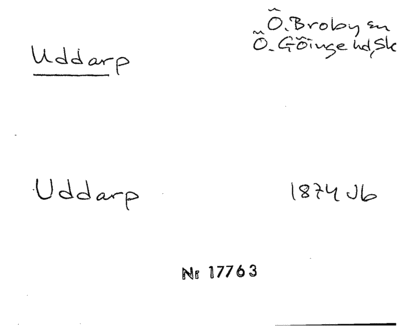 Uddarp
Ö. Broby sn
Ö. Göinge hd, Sk
Uddarp 1874 Jb
Nr 17763